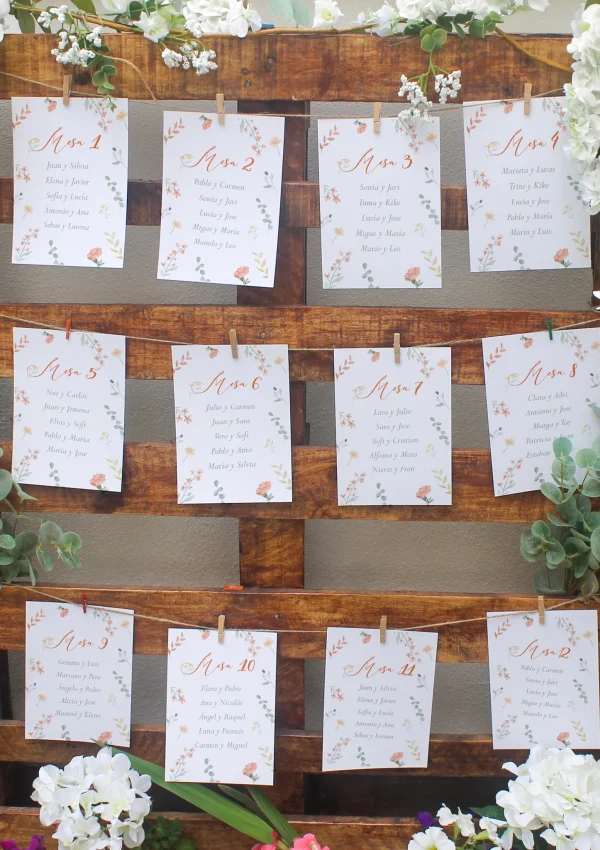 Mesa 1
Juan y Silvia
Elena y Javier
Sofía y Lucía
Antonio y Ana
Sebas y Lorena
Mesa 2
Pablo y Carmen
Sonia y Javi
Lucía y Jose
Migue y María
Manolo y Leo
Mesa 3
Sonia y Javi
Inma y Kike
Lucía y Jose
Migue y María
Mario y Leo
Mesa 4
Marieta y Lucas
Teino y Kike
Lucía y Jose
Pablo y María
María y Luis
Mesa 5
Noa y Carlos
Juan y Jimena
Elias y Sofi
Pablo y María
María y Jose
Mesa 6
Julio y Carmen
Juan y Sara
Yero y Sofi
Pablo y Anto
María y Silvia
Mesa 7
Lara y Julio
Sara y Jose
Sofi y Cristian
Alfonso y Mateo
Nieves y Fran
Mesa 8
Clara y Adri
Antonio y Jose
Marga y
Esteban
Mesa 9
Gemma y Luis
Mariano y Poni
Angela y Pedro
Alicia y Jose
Manuel y Elena
Mesa 10
Flora y Pedro
Ana y Nicolás
Angel y Raquel
Luna y Francis
Carmen y Miguel
Mesa 11
Juan y Silvia
Elena y Javier
Sofía y Lucía
Antonio y Ana
Sebas y Lorena
Mesa 2
Pablo y Carmen
Sonia y Javi
Lucía y Jose
Migue y María
Manolo y Leo